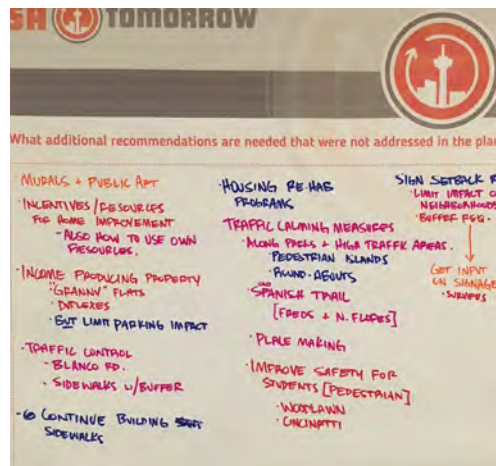 SA TOMORROW
What additional recommendations are needed that were not addressed in the plan
· MURALS + PUBLIC ART
· INCENTIVES/RESOURCES
FOR HOME IMPROVEMENT
- ALSO HOW TO USE OWN
RESOURCES.
· INCOME PRODUCING PROPERTY
"GRANNY" FLATS
· DUPLEXES
· BUT LIMIT PARKING IMPACT
· TRAFFIC CONTROL
· BLANCO RD.
· SIDEWALKS W/BUFFER
CONTINUE BUILDING
SIDEWALKS
· HOUSING RE-HAB
PROGRAMS
TRAFFIC CALMING MEASURES
· ALONG PARKS + HIGH TRAFFIC AREAS.
· PEDESTRIAN ISLANDS
· ROUND-ABOUTS
· SPANISH TRAIL
[FREDS + N. FLORES]
· PLACE MAKING
· IMPROVE SAFETY FOR
STUDENTS [PEDESTRIAN]
· WOODLAWN
· CINCINATTI
SIGN SETBACK R
· LIMIT IMPACT O
NEIGHBORHOODS
· BUFFER REQ.
GET INPUT
ON SIGNAGE
· SURVEYS